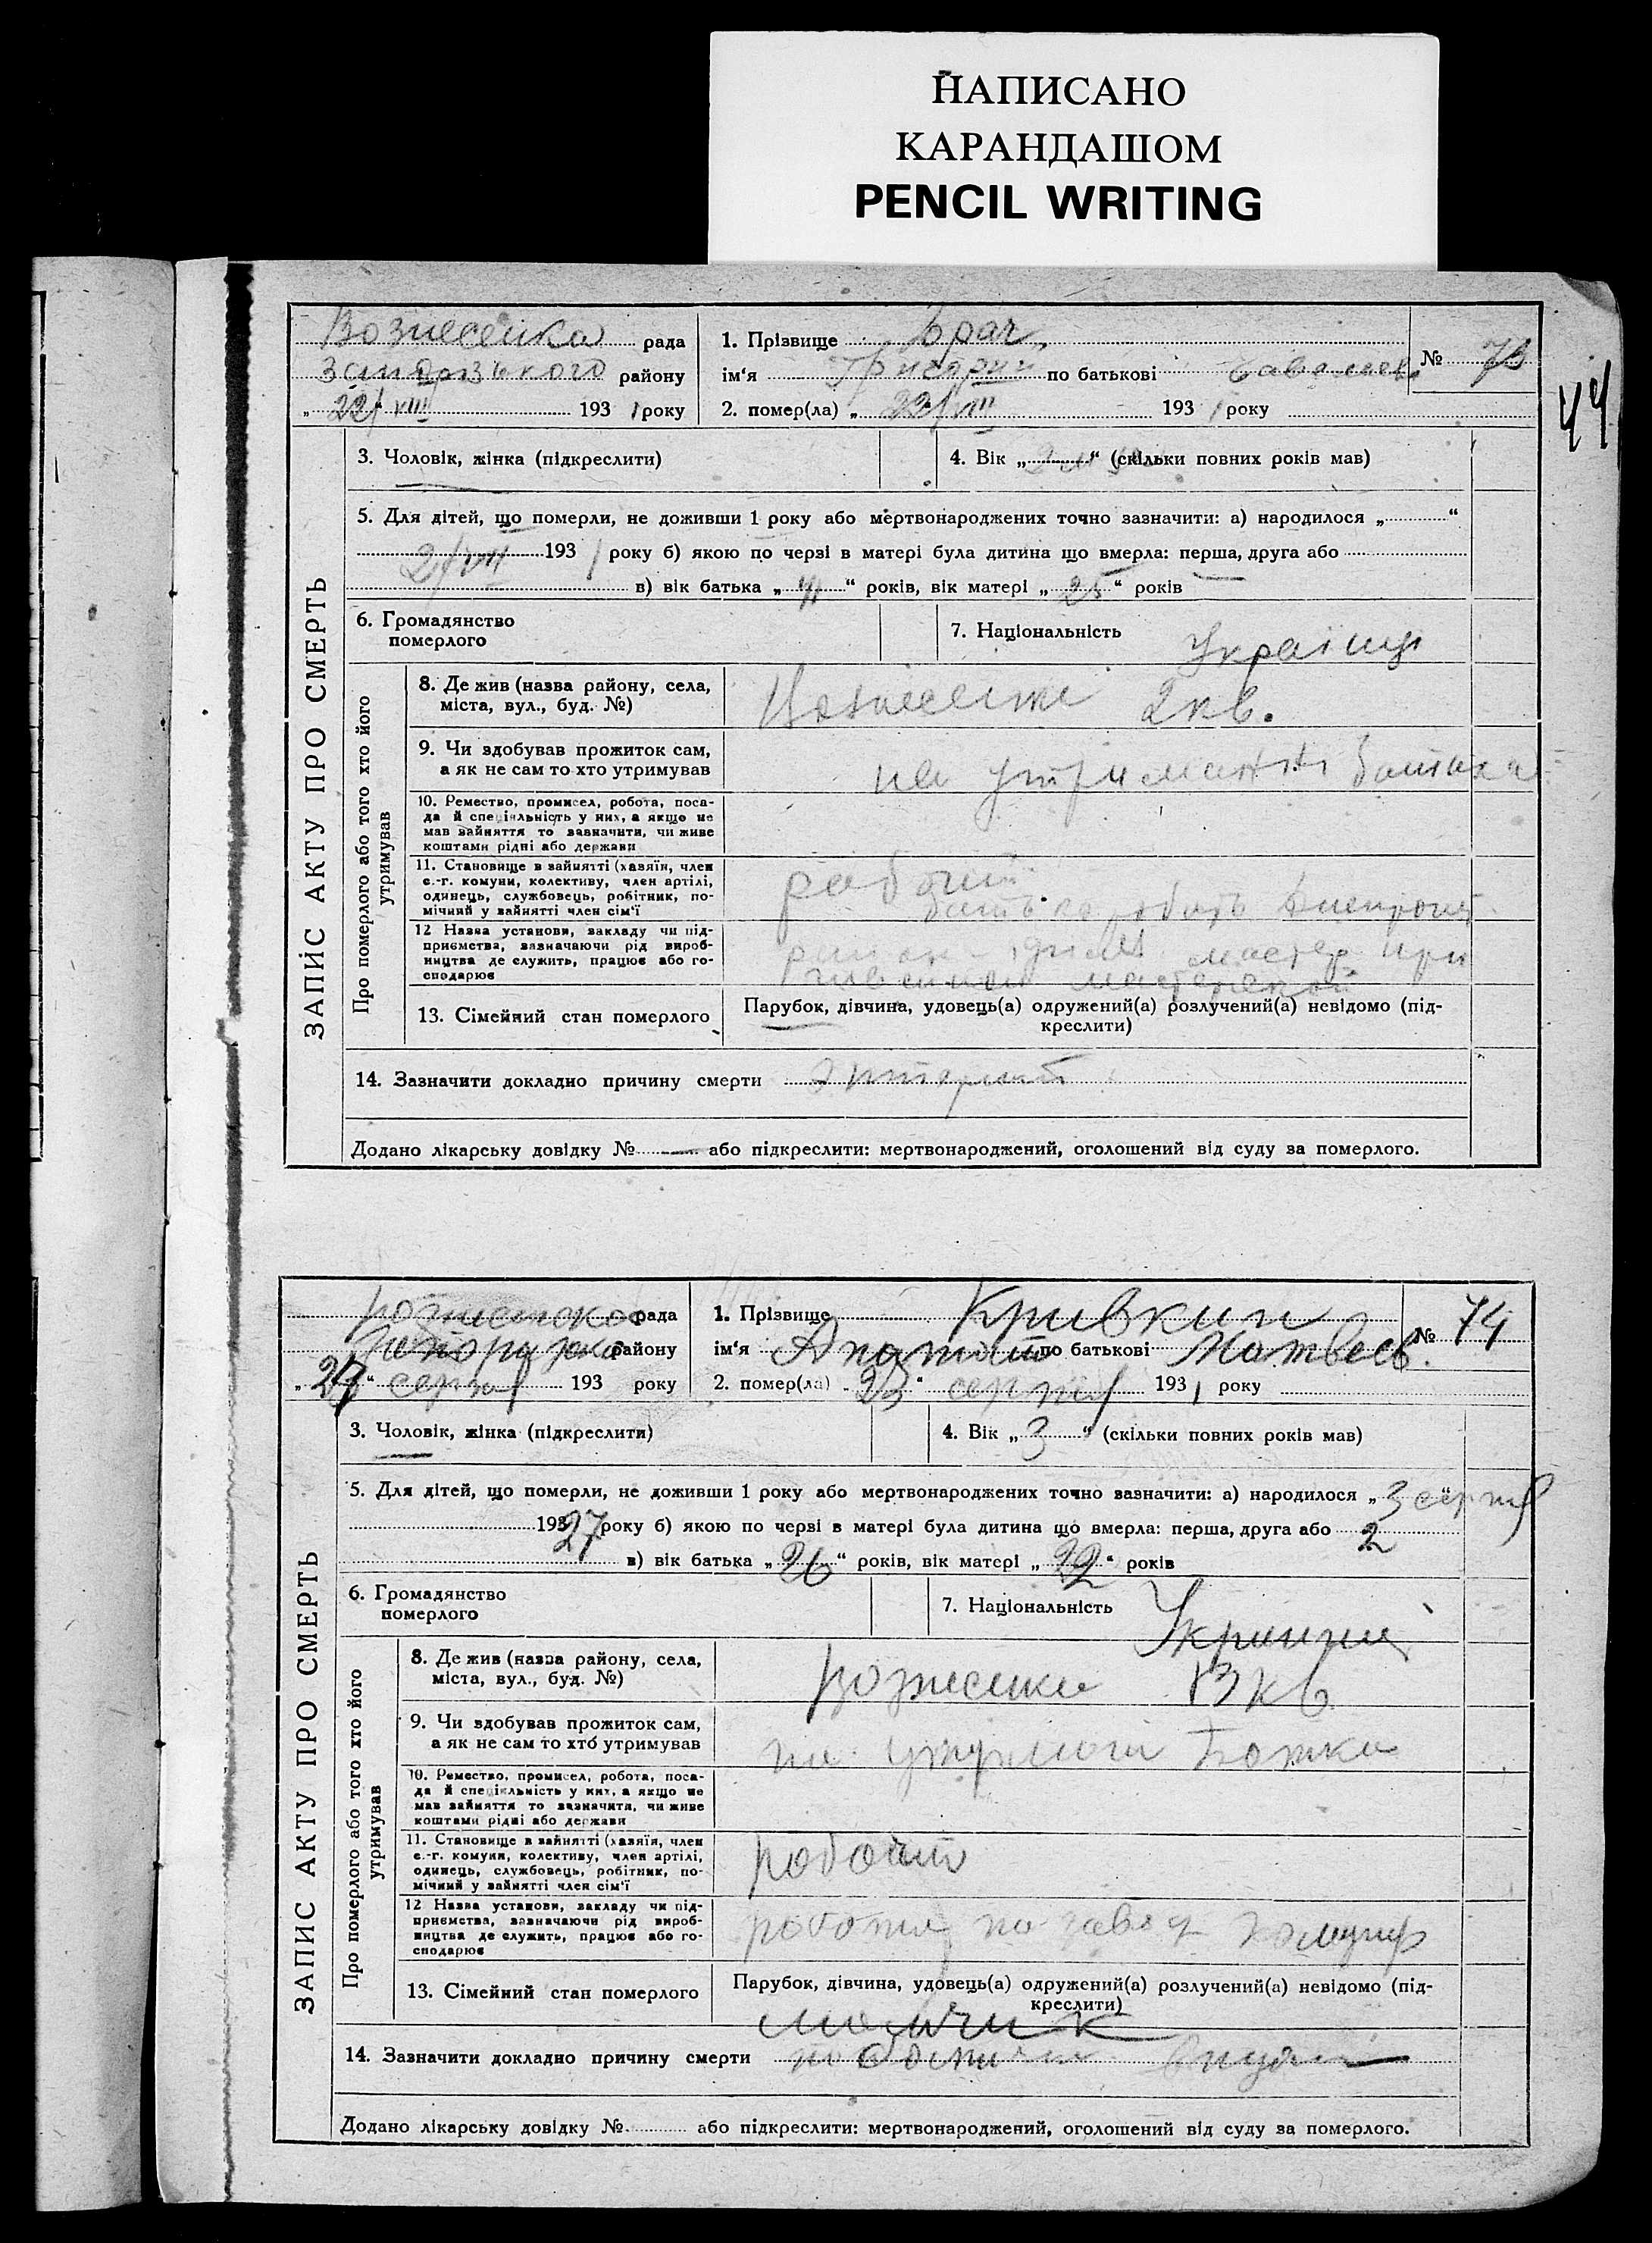 НАПИСАНО
КАРАНДАШОМ
PENCIL WRITING
44
ЗАПИС АКТУ ПРО СМЕРТЬ
Вознесенка рада
Запорізького району
„22/VIII 193 1 року
1. Прізвище Брач
№ 73
ім‘я Григорий по батькові
2. помер(ла) „ 22/VIII 193 1 року
3. Чоловік, жінка (підкреслити)
4. Вік „ “ (скільки повних років мав)
5. Для дітей, що померли, не доживши 1 року або мертвонароджених точно зазначити: а) народилося „ “
2/VII 193 1 року б) якою по черзі в матері була дитина що вмерла: перша, друга або
в) вік батька „ “ років, вік матері „ 25 “ років
6. Громадянство
померлого
7. Національність Україиц
Про померлого або того хто його
утримував
8. Де жив (назва району, села,
міста, вул., буд. №)
Вознесенка 2 кв.
9. Чи здобував прожиток сам,
а як не сам то хто утримував
на утриманні батька
10. Ремество, промисел, робота, поса-
да й спеціяльність у них, а якщо не
мав зайняття то зазначити, чи живе
коштами рідні або держави
11. Становище в зайнятті (хазяїн, член
с.-г. комуни, колективу, член артілі,
одинець, службовець, робітник, по-
мічний у зайнятті член сім‘ї
рабочий
12 Назва установи, закладу чи під-
приємства, зазначаючи рід вироб-
ництва де служить, працює або го-
сподарює
мастер при
13. Сімейний стан померлого
Парубок, дівчина, удовець(а) одружений(а) розлучений(а) невідомо (під-
креслити)
14. Зазначити докладно причину смерти
Додано лікарську довідку № — або підкреслити: мертвонароджений, оголошений від суду за померлого.
ЗАПИС АКТУ ПРО СМЕРТЬ
рада
району
„ “ серпня 193 року
1. Прізвище Кривкин
№ 74
ім‘я Анатолий по батькові Матвеев.
2. помер(ла) „ 23 “ серпня 193 1 року
3. Чоловік, жінка (підкреслити)
4. Вік „ 3 “ (скільки повних років мав)
5. Для дітей, що померли, не доживши 1 року або мертвонароджених точно зазначити: а) народилося „ 3 серпня
1927 року б) якою по черзі в матері була дитина що вмерла: перша, друга або 2
в) вік батька „ “ років, вік матері „ “ років
6. Громадянство
померлого
7. Національність
Про померлого або того хто його
утримував
8. Де жив (назва району, села,
міста, вул., буд. №)
Вознесенка кв
9. Чи здобував прожиток сам,
а як не сам то хто утримував
на батька
10. Ремество, промисел, робота, поса-
да й спеціяльність у них, а якщо не
мав зайняття то зазначити, чи живе
коштами рідні або держави
11. Становище в зайнятті (хазяїн, член
с.-г. комуни, колективу, член артілі,
одинець, службовець, робітник, по-
мічний у зайнятті член сім‘ї
12 Назва установи, закладу чи під-
приємства, зазначаючи рід вироб-
ництва де служить, працює або го-
сподарює
на завод
13. Сімейний стан померлого
Парубок, дівчина, удовець(а) одружений(а) розлучений(а) невідомо (під-
креслити)
мальчик
14. Зазначити докладно причину смерти
Додано лікарську довідку № або підкреслити: мертвонароджений, оголошений від суду за померлого.